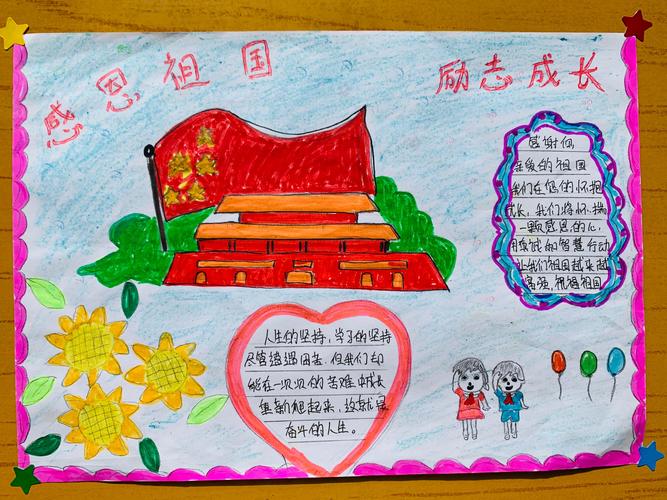 感恩祖国
励志成长
感谢您,
亲爱的祖国
我们在您的怀抱
成长,我们将怀揣
一颗感恩的心,
用真诚的智慧行动
让我们祖国越来越
富强,祝福祖国
人生的坚持,学习的坚持
尽管遭遇困苦,但我们却
能在一次次的苦难中成长
重新爬起来,这就是
奋斗的人生。